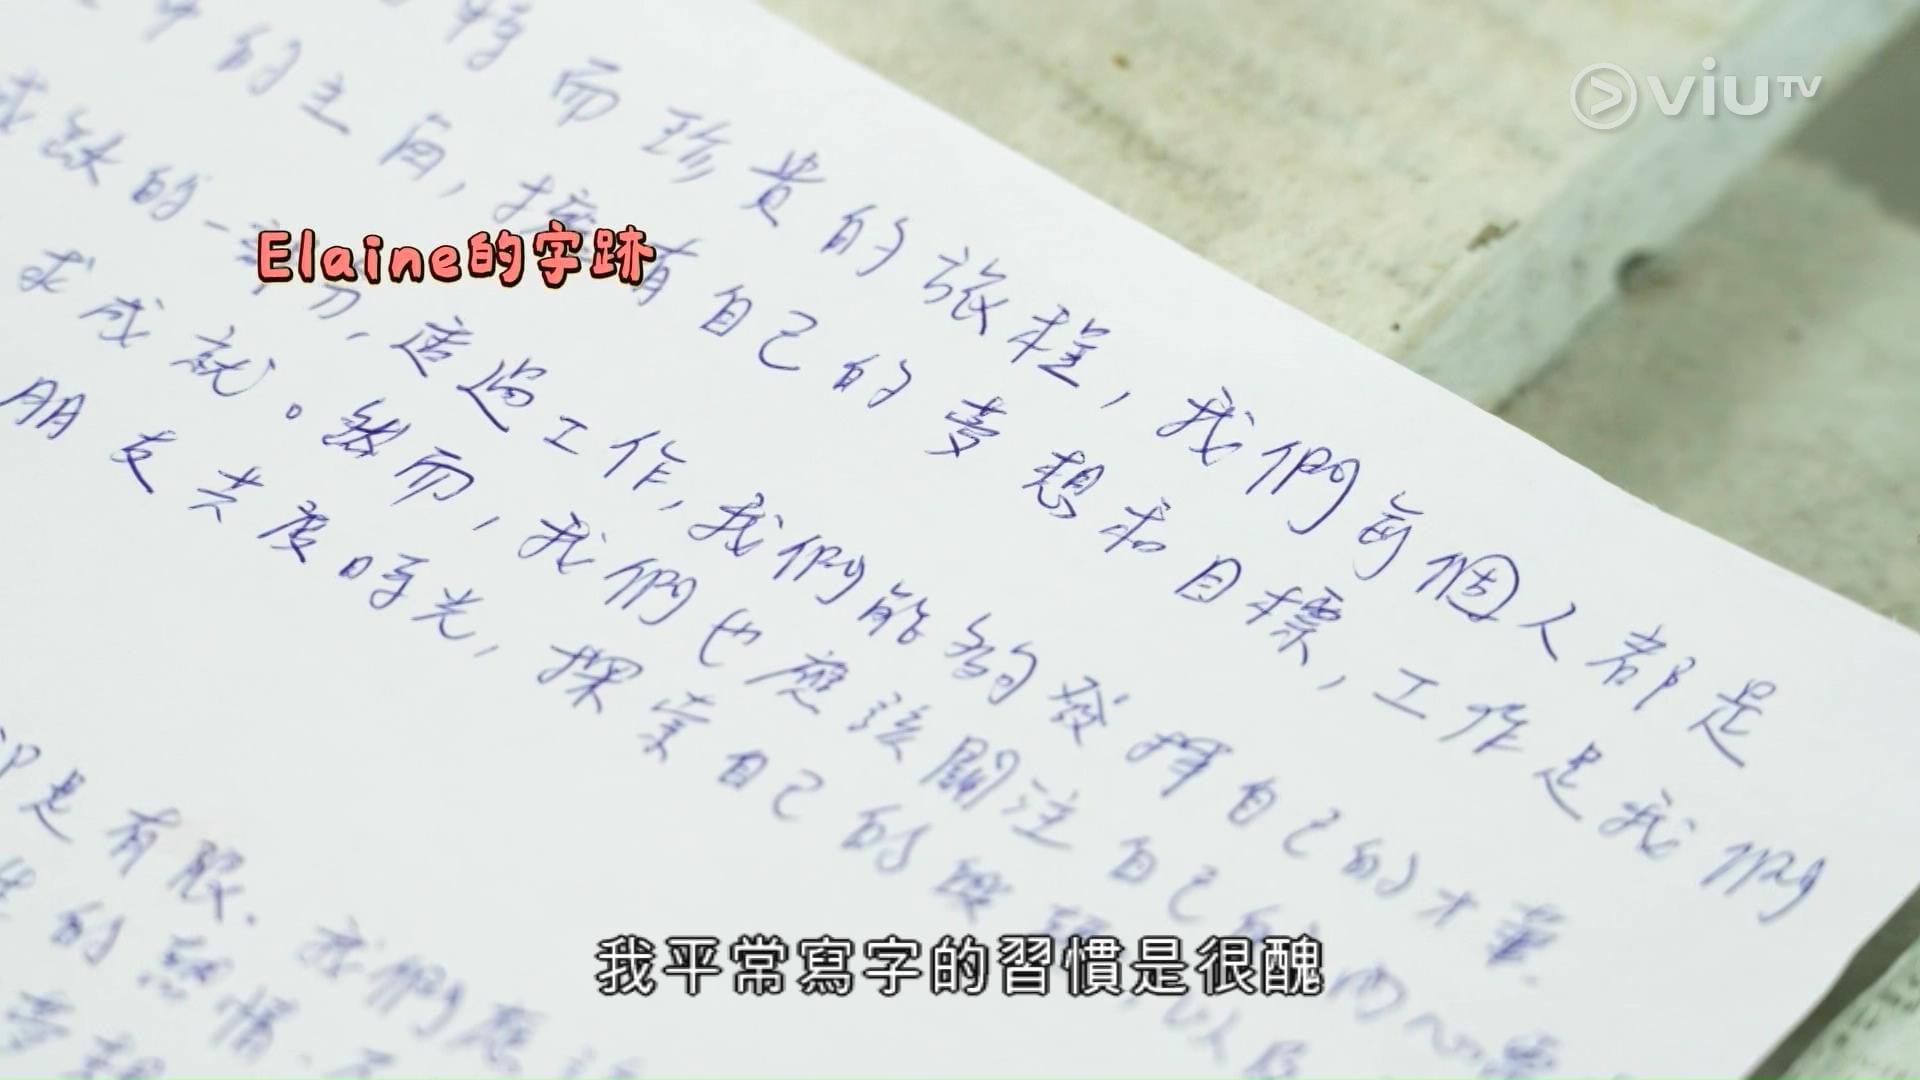 viuTV
Elaine的字跡
而珍貴的旅程，我們每個人都是
的主角，擁有自己的夢想和目標，工作是我們
缺的一部分，透過工作，我們能夠發揮自己的才華
求成就。然而，我們也應該關注自己的內心需
朋友共度時光，探索自己的興趣
都是有限，我們應該
的熱情
我平常寫字的習慣是很醜